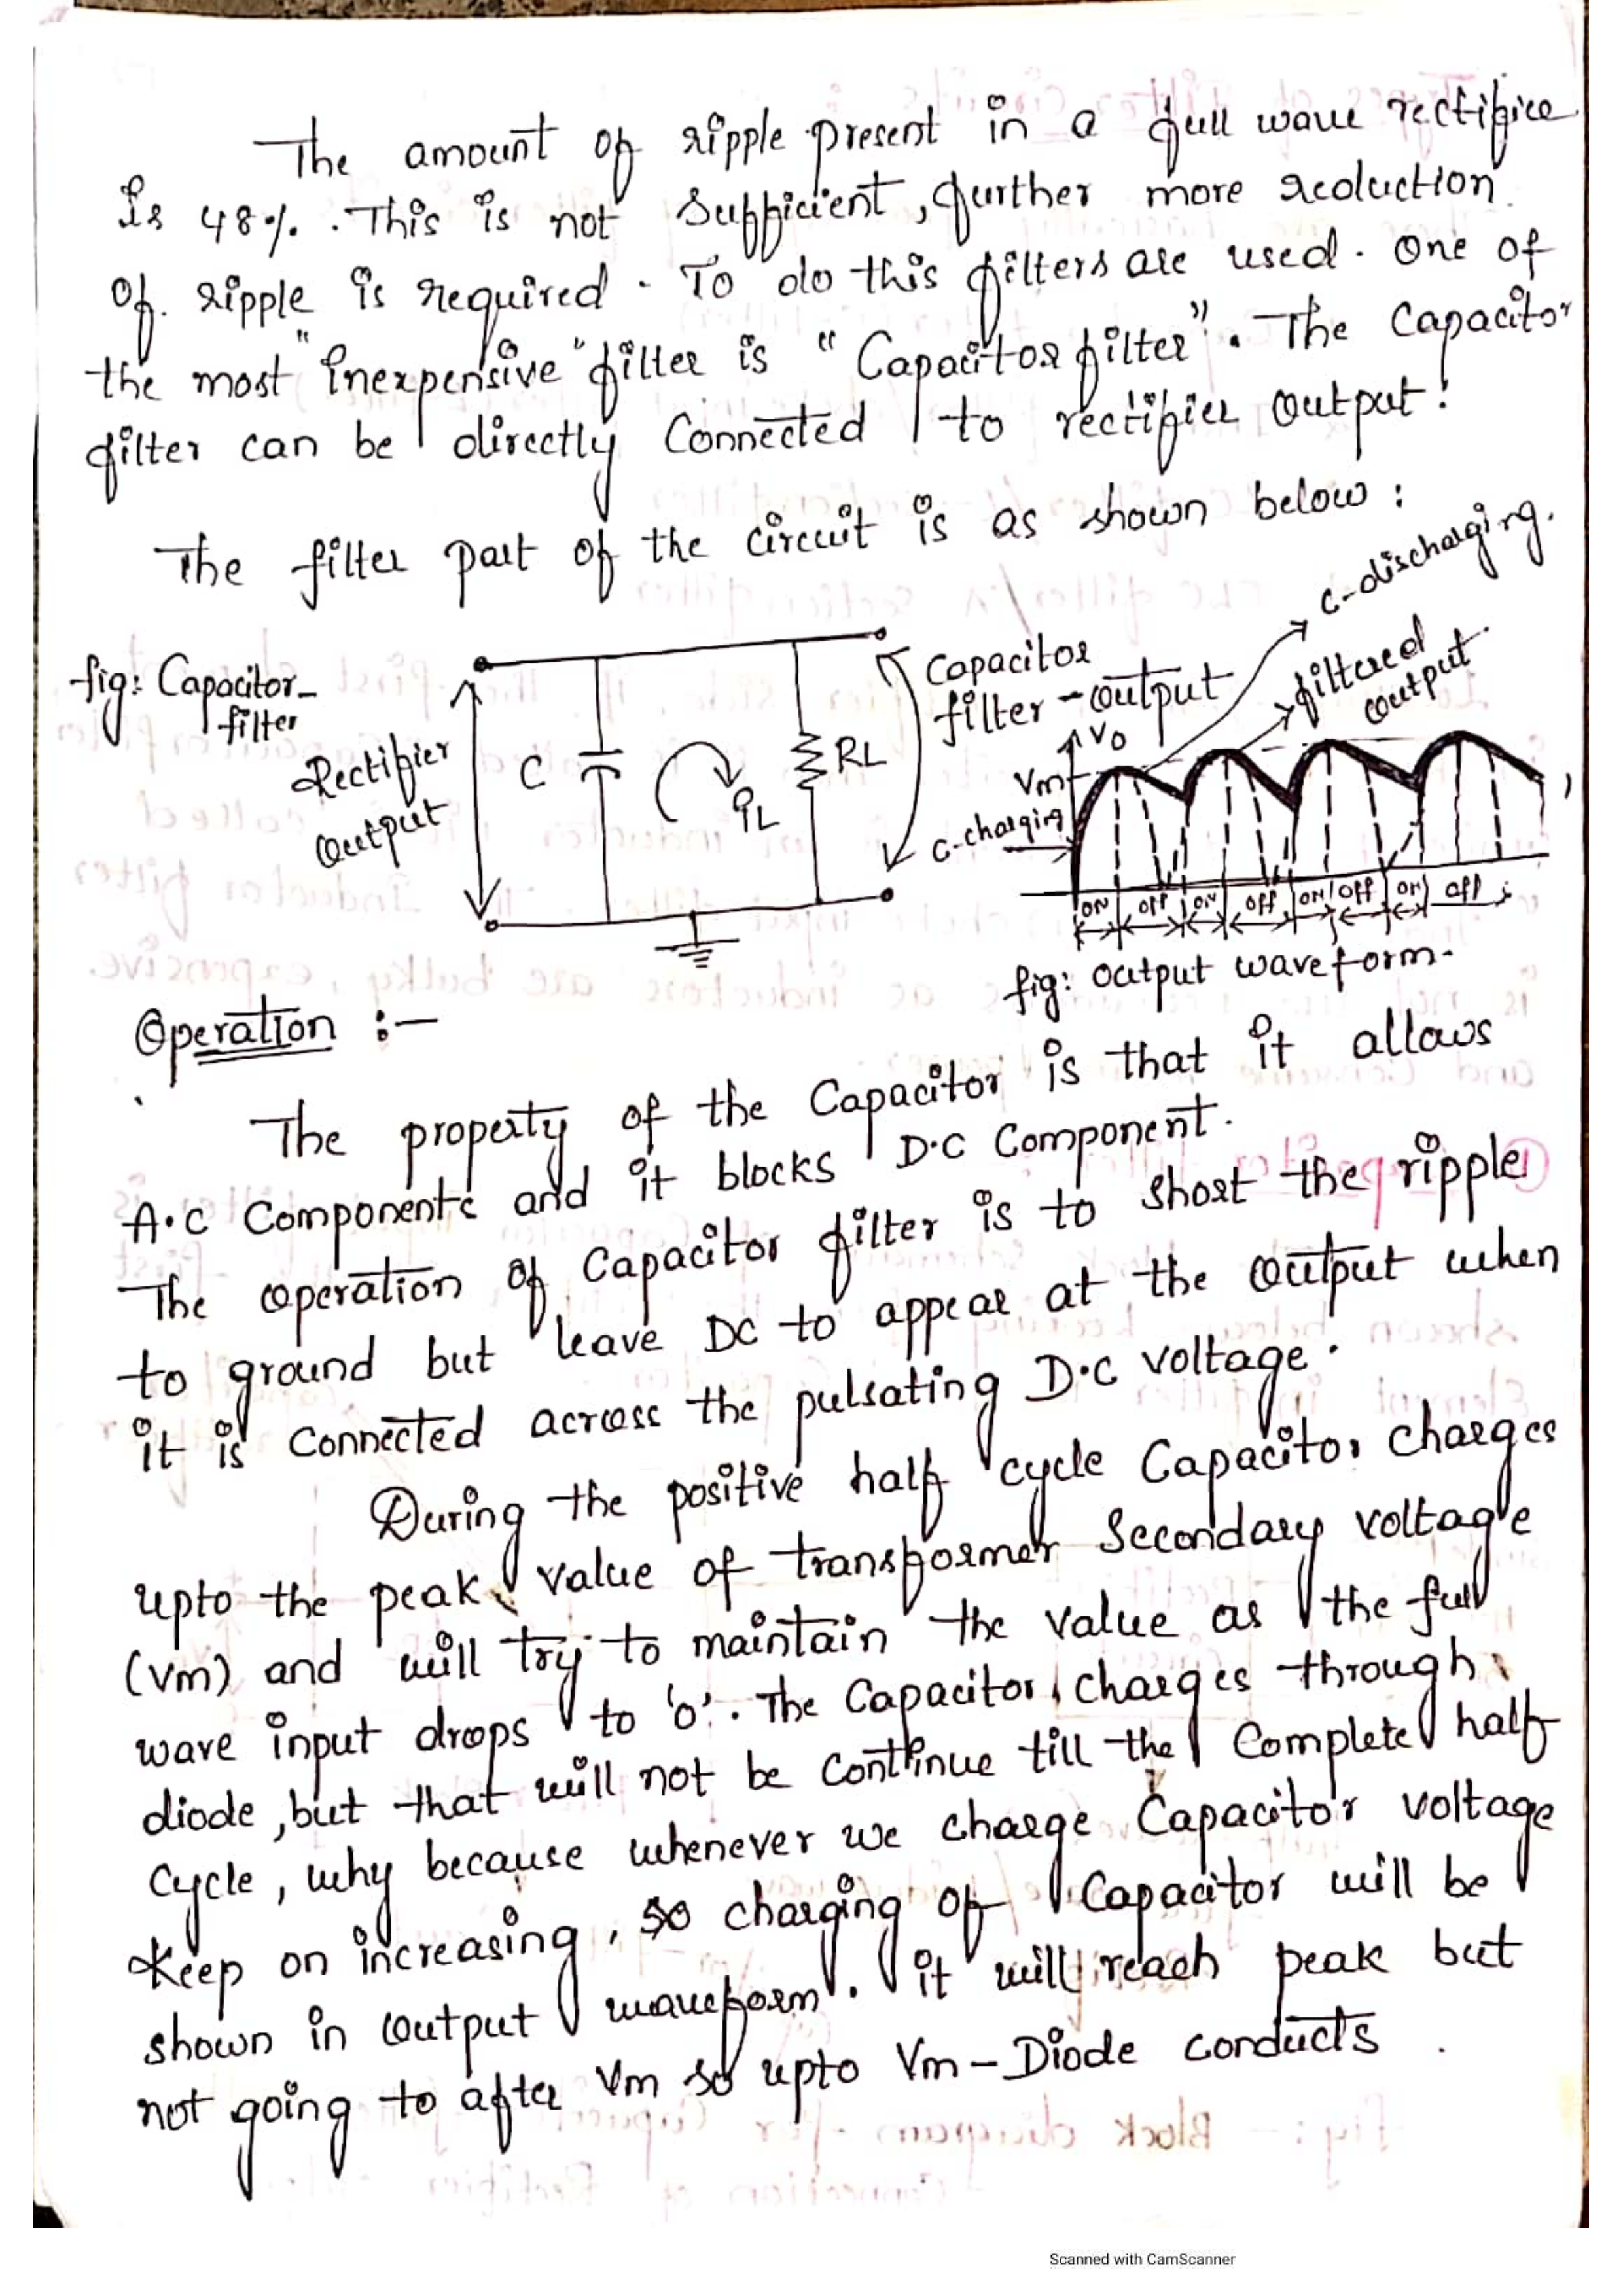 The amount of ripple present in a full wave rectifice
is 48%. This is not sufficient, further more reduction
of ripple is required. To do this filters are used. One of
the most "inexpensive" filter is "Capacitor filter". The Capacitor
filter can be directly Connected to rectifier output!
The filter part of the circuit is as shown below :
fig: Capacitor-
filter
Rectifier
Output
C
iL
RL
Capacitor
filter - output
C-discharging.
filtered
output
Vo
Vm
C-charging
ON off ON off ON off ON off
fig: output waveform.
Operation :-
The property of the Capacitor is that it allows
A.C Components and it blocks D.C Component.
The operation of Capacitor filter is to short the ripple
to ground but leave DC to appear at the output when
it is Connected across the pulsating D.C voltage.
During the positive half cycle Capacitor charges
upto the peak value of transformer Secondary voltage
(Vm) and will try to maintain the value as the full
wave input drops to 'o'. The Capacitor charges through
diode, but that will not be continue till the Complete half
Cycle, why because whenever we charge Capacitor voltage
Keep on increasing, so charging of Capacitor will be
shown in output waveform. it will reach peak but
not going to after Vm so upto Vm - Diode conducts
Scanned with CamScanner